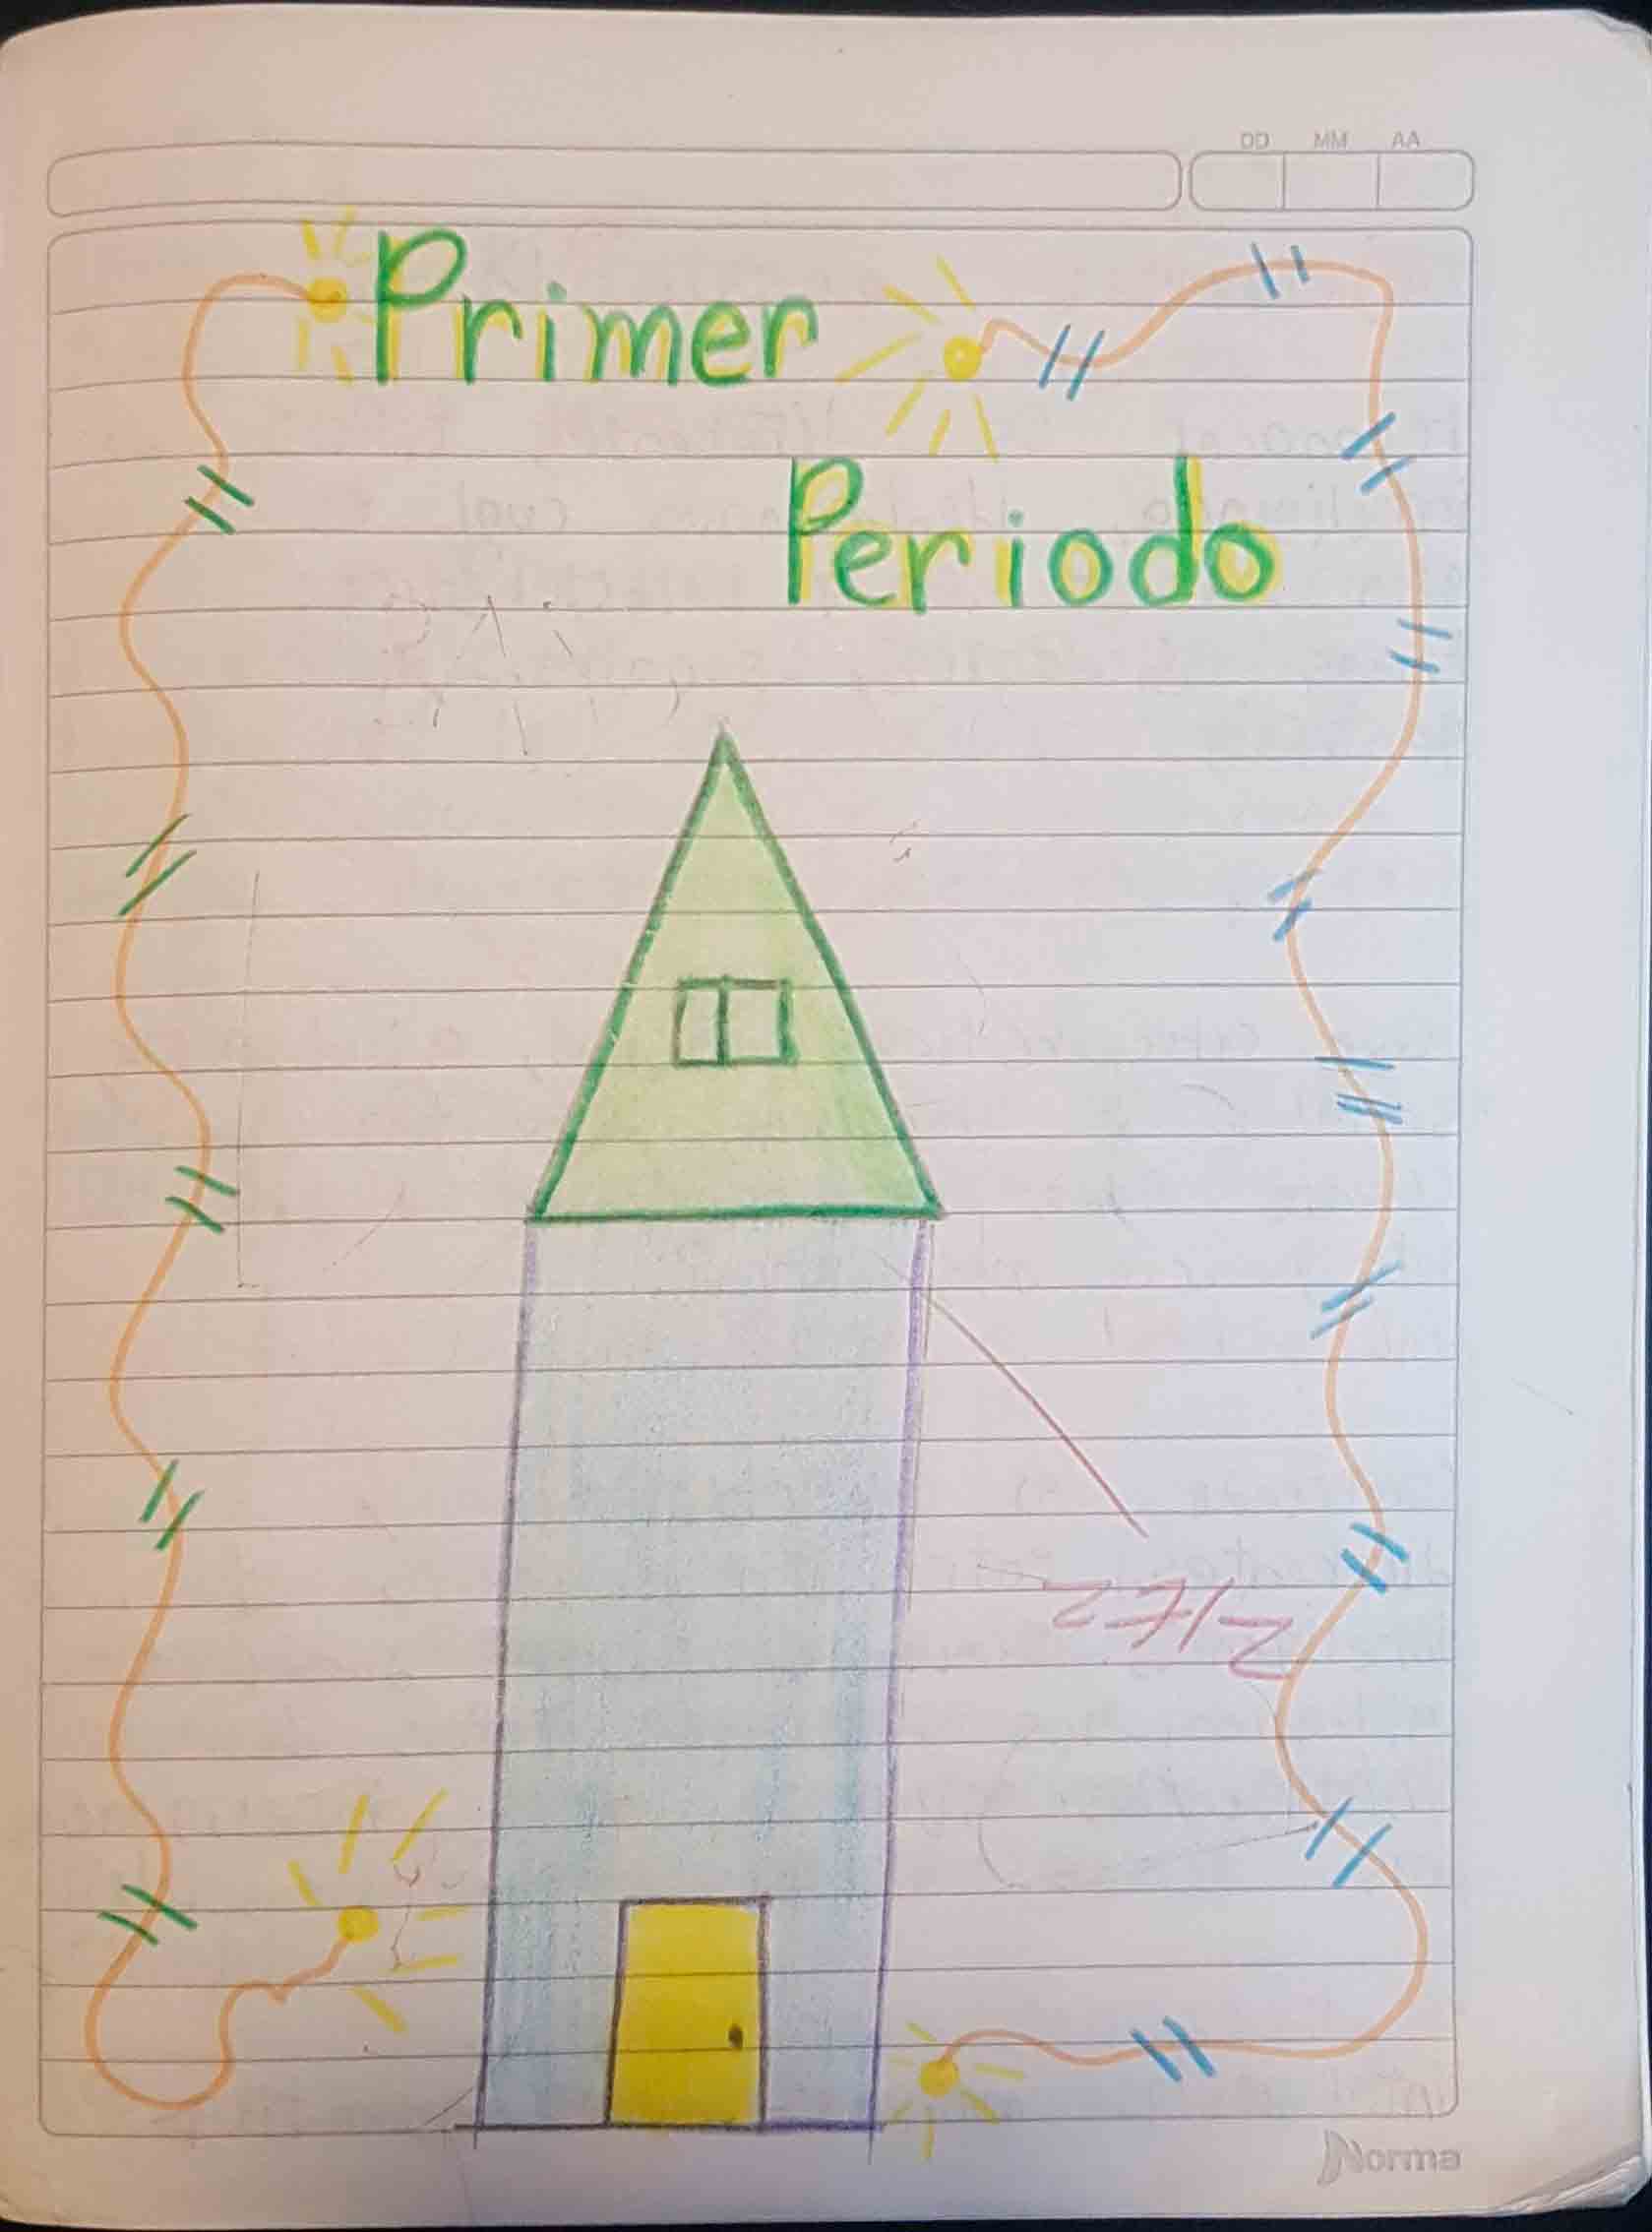 DD MM AA
Primer
Periodo
Norma